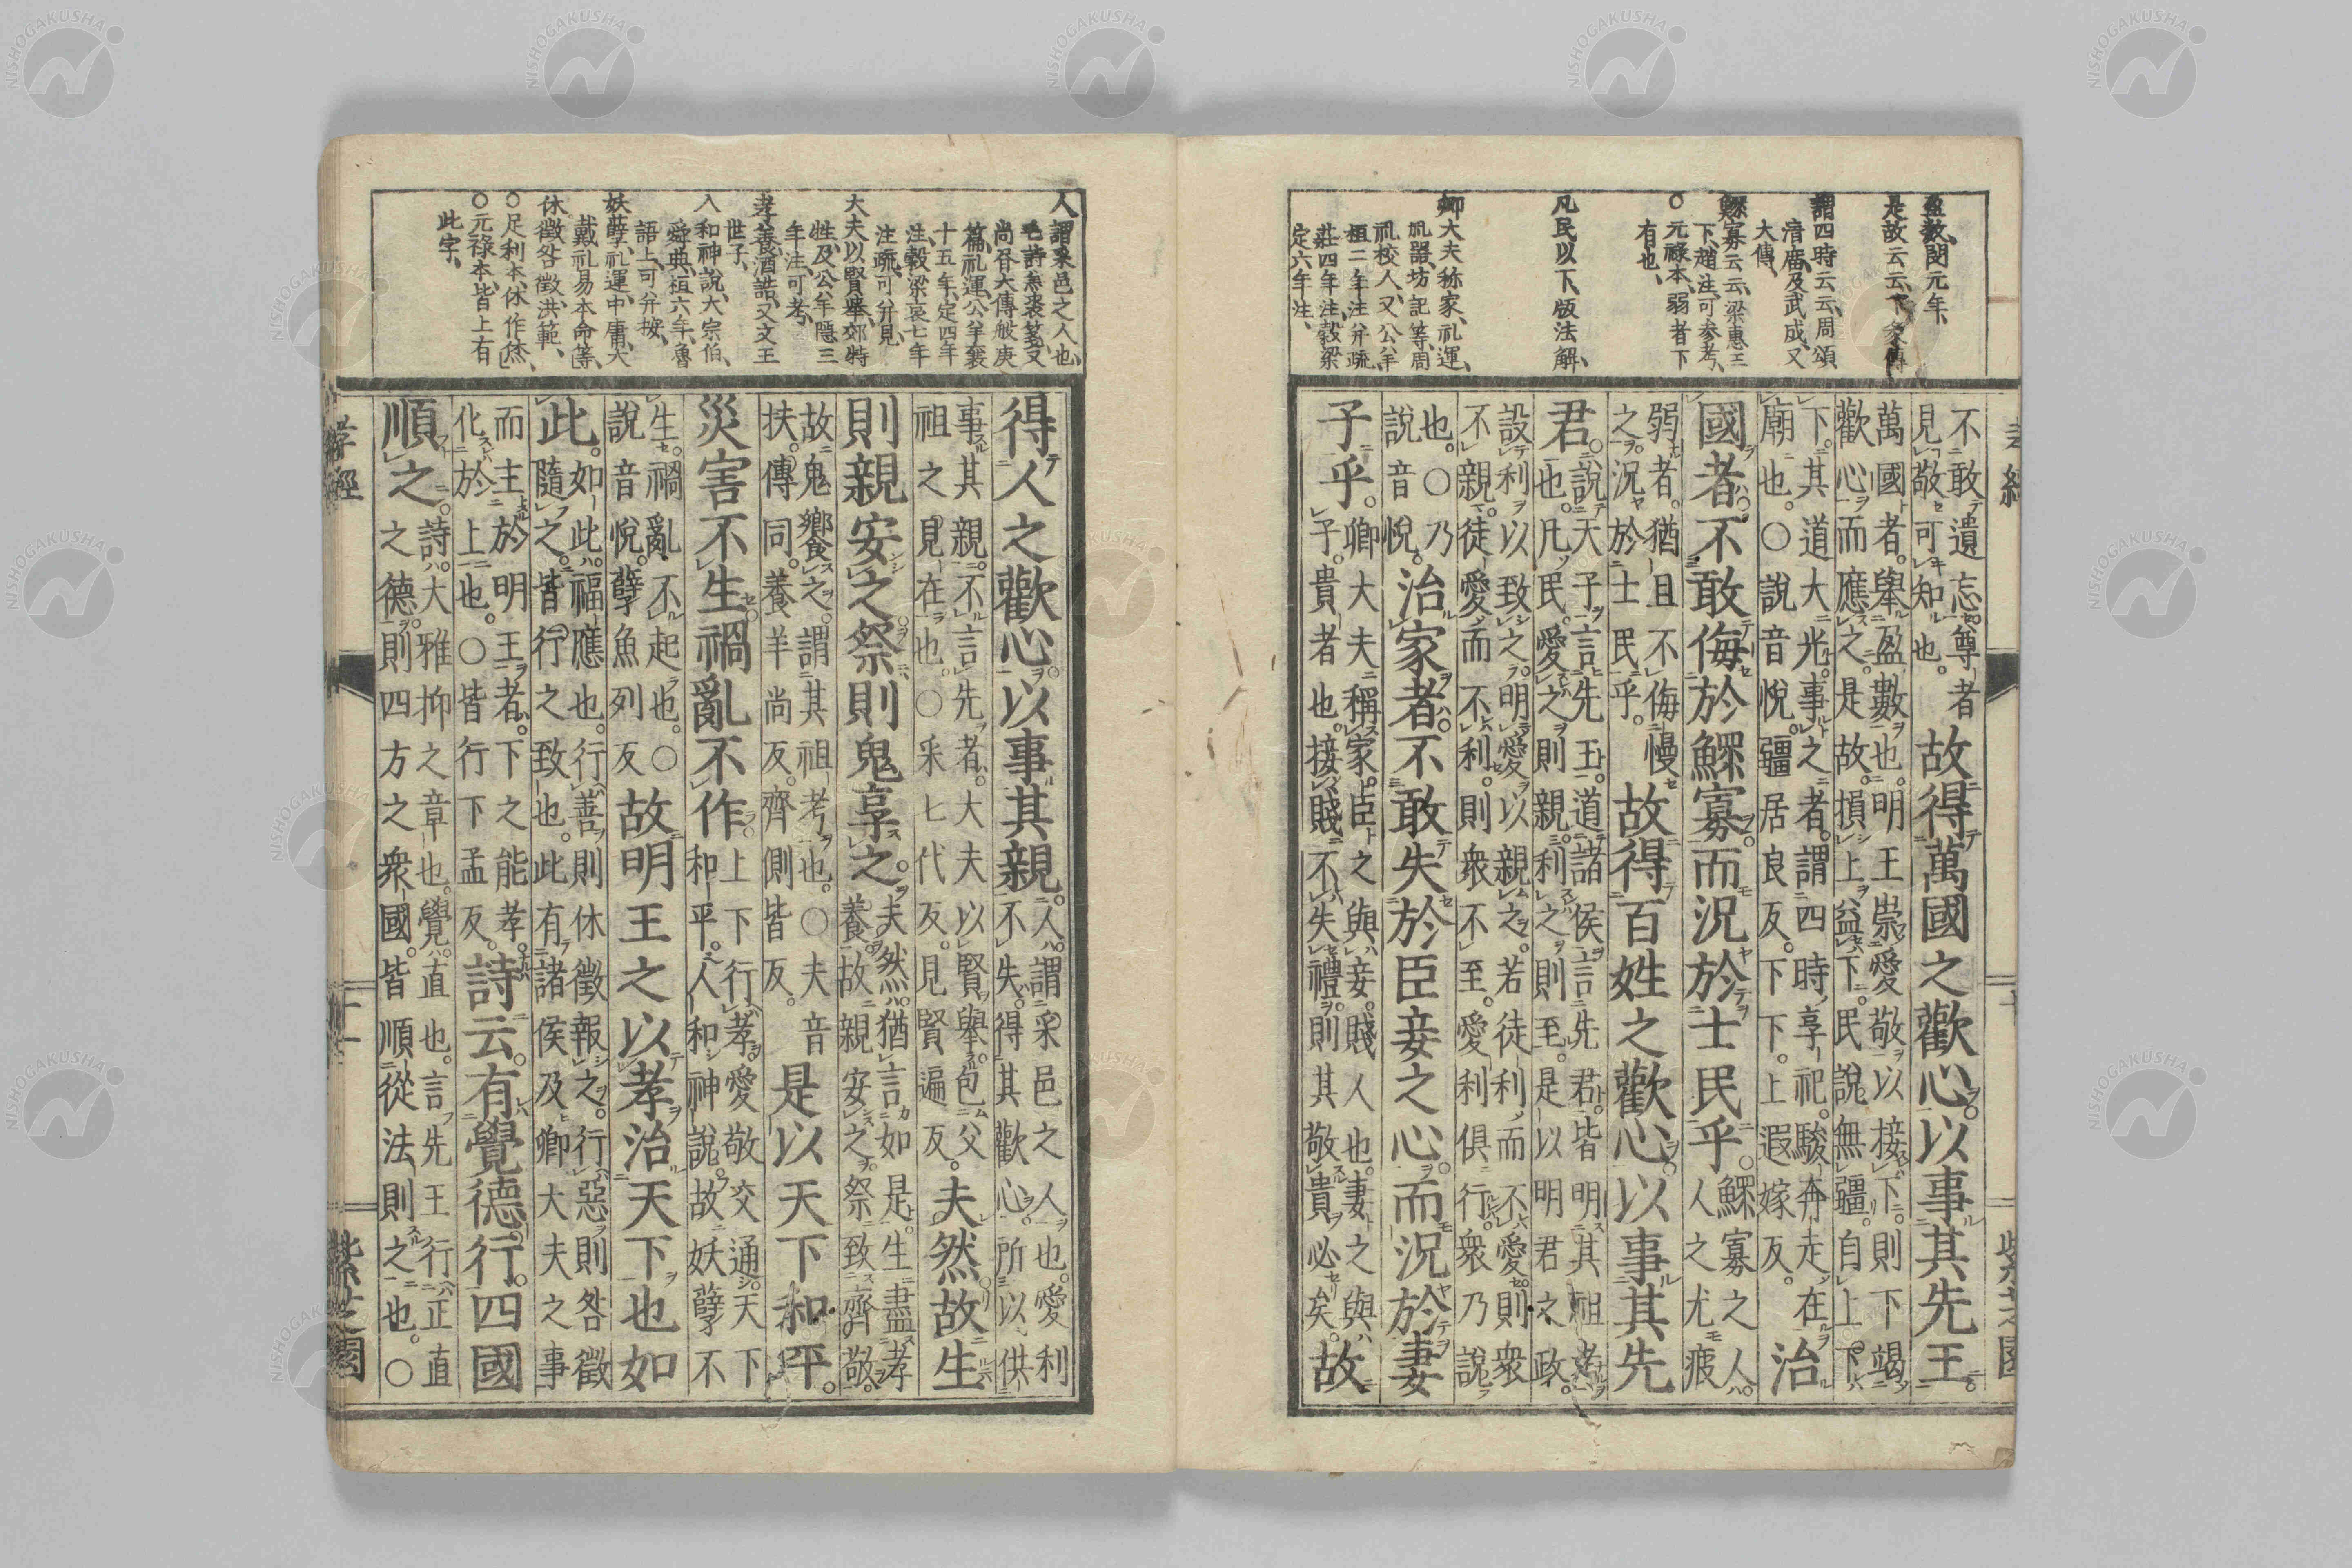 盈數、閔元年、
是故云云、下象傳
謂四時云云、周頌
清廟及武成、又
大傳、
鰥寡云云、梁惠王
下、趙注、可參考、
○元祿本、弱者下
有也、
凡民以下、版法解、
卿大夫称家、礼運、
礼器、坊記等、周
礼校人、又公羊
桓二年注并疏
莊四年注、穀梁
定六年注、
不敢遺忘尊者
見敬可知也。
故得萬國之歡心。以事其先王。
萬國者。舉盈數也。明王崇愛敬以接下。則下竭
歡心而應之。是故。損上益下。民說無疆。自上下
下。其道大光。事之者。謂四時享祀。駿奔走在
廟也。○說音悅。疆居良反。下下。上遐嫁反。
治
國者。不敢侮於鰥寡。而況於士民乎。
鰥寡之人。
人之尤疲
弱者。猶且不侮慢
之。況於士民乎。
故得百姓之歡心。以事其先
君。
說天子言先王。道諸侯言先君。皆明其祖考
也。凡民。愛之則親。利之則至。是以明君之政。
設利以致之。明愛以親之。若徒利而不愛。則衆
不親。徒愛而不利。則衆不至。愛利俱行。衆乃說
也。○乃
說音悅。
治家者。不敢失於臣妾之心。而況於妻
子乎。
卿大夫稱家。臣之與妾。賤人也。妻之與
子。貴者也。接賤不失禮。則其敬貴必矣。
故
人謂采邑之人也、
毛詩羔裘箋、又
尚書大傳般庚
篇、礼運、公羊襄
十五年、定四年
注、穀梁哀七年
注疏、可并見、
大夫以賢擧、郊特
牲、及公羊隱三
年注、可考、
孝養、酒誥、又文王
世子、
人和神說、大宗伯、
舜典、桓六年、魯
語上、可并按、
妖孽、礼運、中庸、大
戴礼易本命等、
休徵咎徵、洪範、
○足利本、休作烋、
○元祿本、皆上有
此字、
得人之歡心。以事其親。
人。謂采邑之人也。愛利
不失。得其歡心。所以供
事其親。不言先者。大夫以賢舉。包父
祖之見在也。○采七代反。見賢遍反。
夫然。故生
則親安之。祭則鬼享之。
夫然。猶言如是。生盡孝
養。故親安之。祭致齊敬。
故鬼饗之。謂其祖考也。○夫音
扶。傳同。養羊尚反。齊側皆反。
是以天下和平。
災害不生。禍亂不作。
上下行孝。愛敬交通。天下
和平。人和神說。故妖孽不
生。禍亂不起也。○
說音悅。孽魚列反
故明王之以孝治天下也如
此。
如此。福應也。行善則休徵報之。行惡則咎徵
隨之。皆行之致也。此有諸侯及卿大夫之事
而主於明王者。下之能孝。
化於上也。○皆行下孟反。
詩云。有覺德行。四國
順之。
詩。大雅抑之章也。覺。直也。言先王行正直
之德。則四方之衆國。皆順從法則之也。○
孝經
十一
紫芝園